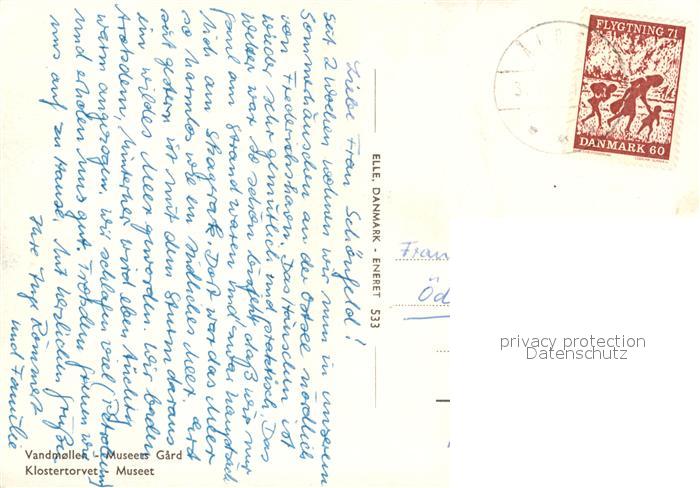 Liebe Frau Schönfeld!
Seit 2 Wochen wohnen wir nun in unserem
Sommerhäuschen an der Ostsee nördlich
von Frederikshavn. Das Häuschen ist
wieder sehr gemütlich und praktisch. Das
Wetter war so schön bisher, daß wir nur
faul am Strand waren und zwar hauptsäch-
lich am Skagerak. Dort war das Meer
so harmlos wie ein südliches Meer. Erst
seit gestern ist mit dem Sturm daraus
ein wildes Meer geworden. Wir baden
trotzdem, hinterher wird eben tüchtig
warm angezogen. Wir schlafen viel
und erholen uns gut. Trotzdem freuen wir
uns auf zu Hause. Mit herzlichen Grüßen
Ihre Inge Römmer
und Familie
ELLE, DANMARK - ENERET 533
FLYGTNING 71
DANMARK 60
Frau
Öd
privacy protection
Datenschutz
Vandmøllen - Museets Gård
Klostertorvet - Museet